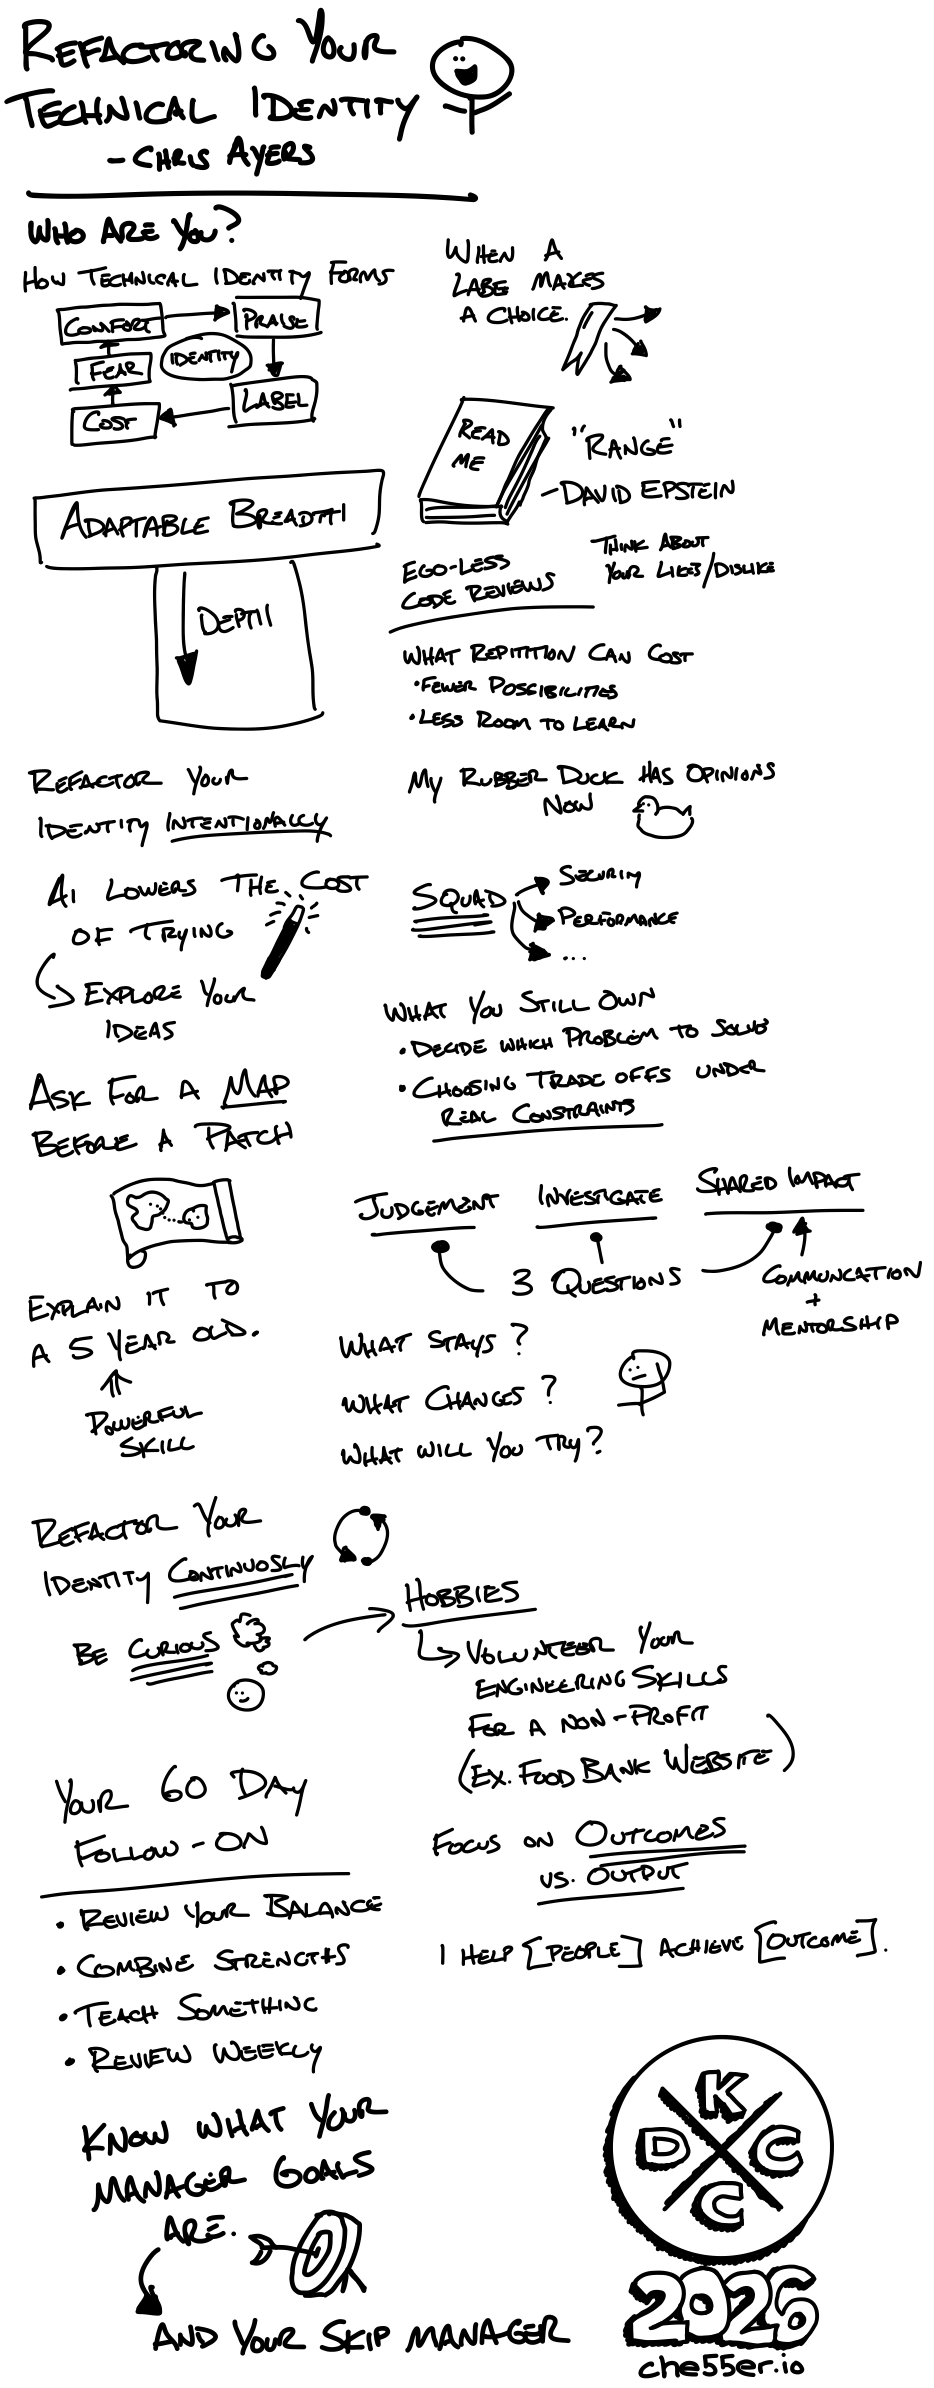 REFACTORING YOUR
TECHNICAL IDENTITY
- CHRIS AYERS
WHO ARE YOU?
HOW TECHNICAL IDENTITY FORMS
COMFORT
PRAISE
FEAR
IDENTITY
COST
LABEL
WHEN A
LABE MAKES
A CHOICE.
READ
ME
"RANGE"
- DAVID EPSTEIN
ADAPTABLE BREADTH
DEPTH
EGO-LESS
CODE REVIEWS
THINK ABOUT
YOUR LIKES/DISLIKE
WHAT REPITITION CAN COST
• FEWER POSSIBILITIES
• LESS ROOM TO LEARN
REFACTOR YOUR
IDENTITY INTENTIONALLY
MY RUBBER DUCK HAS OPINIONS
NOW
AI LOWERS THE COST
OF TRYING
EXPLORE YOUR
IDEAS
SQUAD
SECURITY
PERFORMANCE
...
WHAT YOU STILL OWN
• DECIDE WHICH PROBLEM TO SOLVE
• CHOOSING TRADE OFFS UNDER
REAL CONSTRAINTS
ASK FOR A MAP
BEFORE A PATCH
JUDGEMENT
INVESTIGATE
SHARED IMPACT
3 QUESTIONS
COMMUNCATION
+
MENTORSHIP
EXPLAIN IT TO
A 5 YEAR OLD.
POWERFUL
SKILL
WHAT STAYS?
WHAT CHANGES?
WHAT WILL YOU TRY?
REFACTOR YOUR
IDENTITY CONTINUOSLY
BE CURIOUS
HOBBIES
VOLUNTEER YOUR
ENGINEERING SKILLS
FOR A NON-PROFIT
(EX. FOOD BANK WEBSITE)
YOUR 60 DAY
FOLLOW-ON
• REVIEW YOUR BALANCE
• COMBINE STRENGTHS
• TEACH SOMETHING
• REVIEW WEEKLY
FOCUS ON OUTCOMES
VS. OUTPUT
I HELP [PEOPLE] ACHIEVE [OUTCOME].
KNOW WHAT YOUR
MANAGER GOALS
ARE.
AND YOUR SKIP MANAGER
K
D C
C
2026
che55er.io